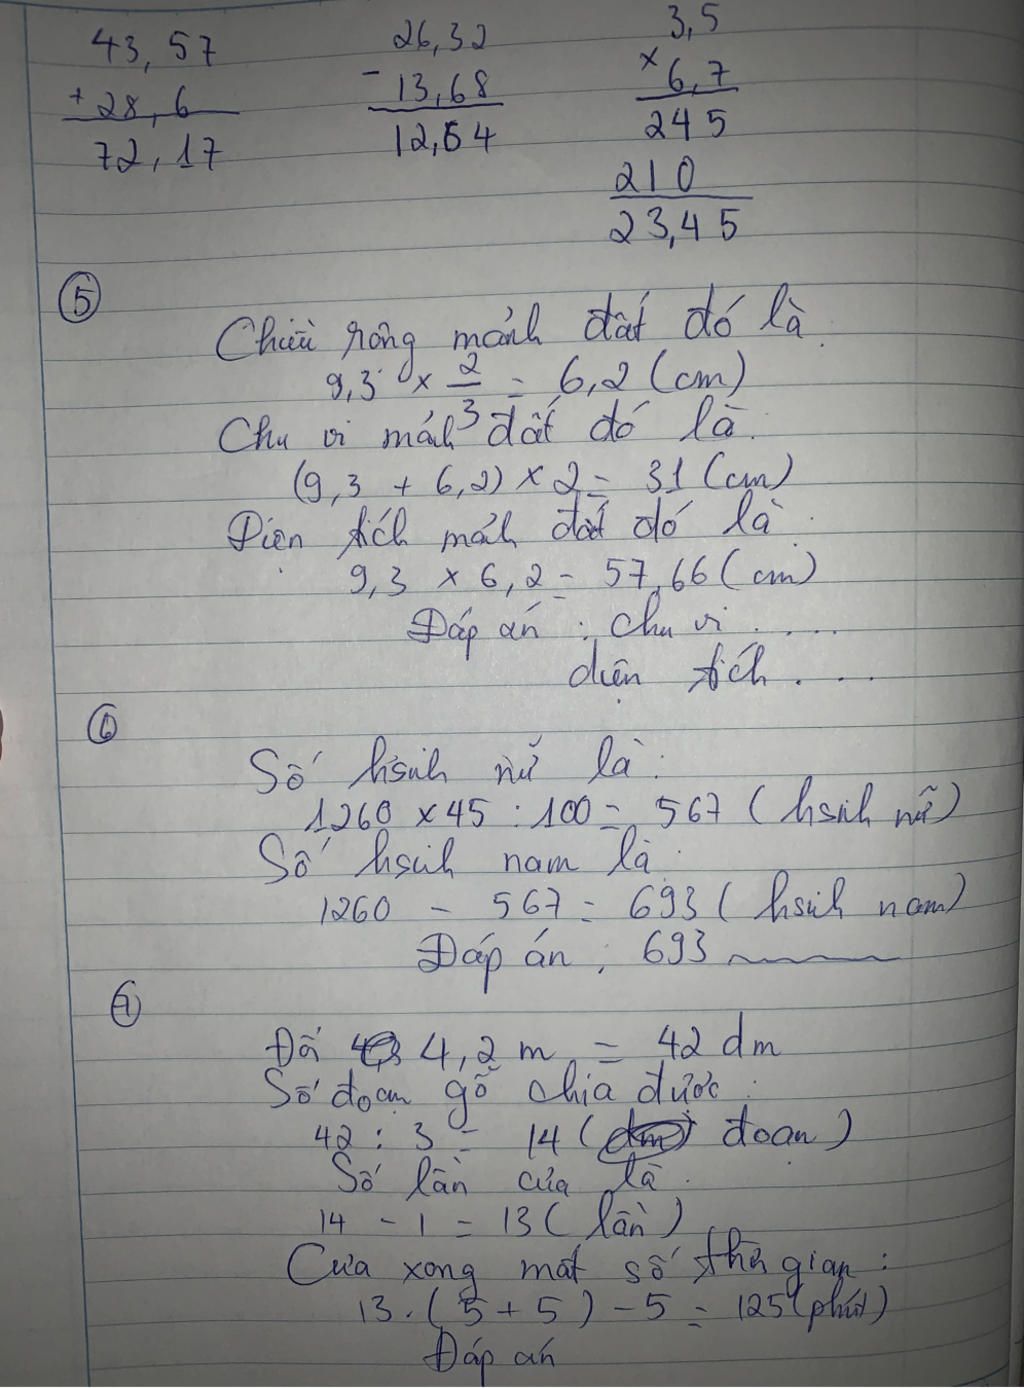 43,57
+ 28,6
72,17
26,32
- 13,68
12,64
3,5
× 6,7
245
210
23,45
5
Chiều rộng mảnh đất đó là
9,3 × 2/3 = 6,2 (cm)
Chu vi mảnh đất đó là.
(9,3 + 6,2) × 2 = 31 (cm)
Diện tích mảnh đất đó là:
9,3 × 6,2 = 57,66 (cm)
Đáp án : chu vi ....
diện tích ....
6
Số hsinh nữ là:
1260 × 45 : 100 = 567 (hsinh nữ)
Số hsinh nam là:
1260 - 567 = 693 (hsinh nam)
Đáp án : 693
Đổi 4,2 m = 42 dm
Số đoạn gỗ chia được:
42 : 3 = 14 (đoạn)
Số lần cưa là.
14 - 1 = 13 (lần)
Cưa xong mất số thời gian:
13.(5 + 5) - 5 = 125 (phút)
Đáp án